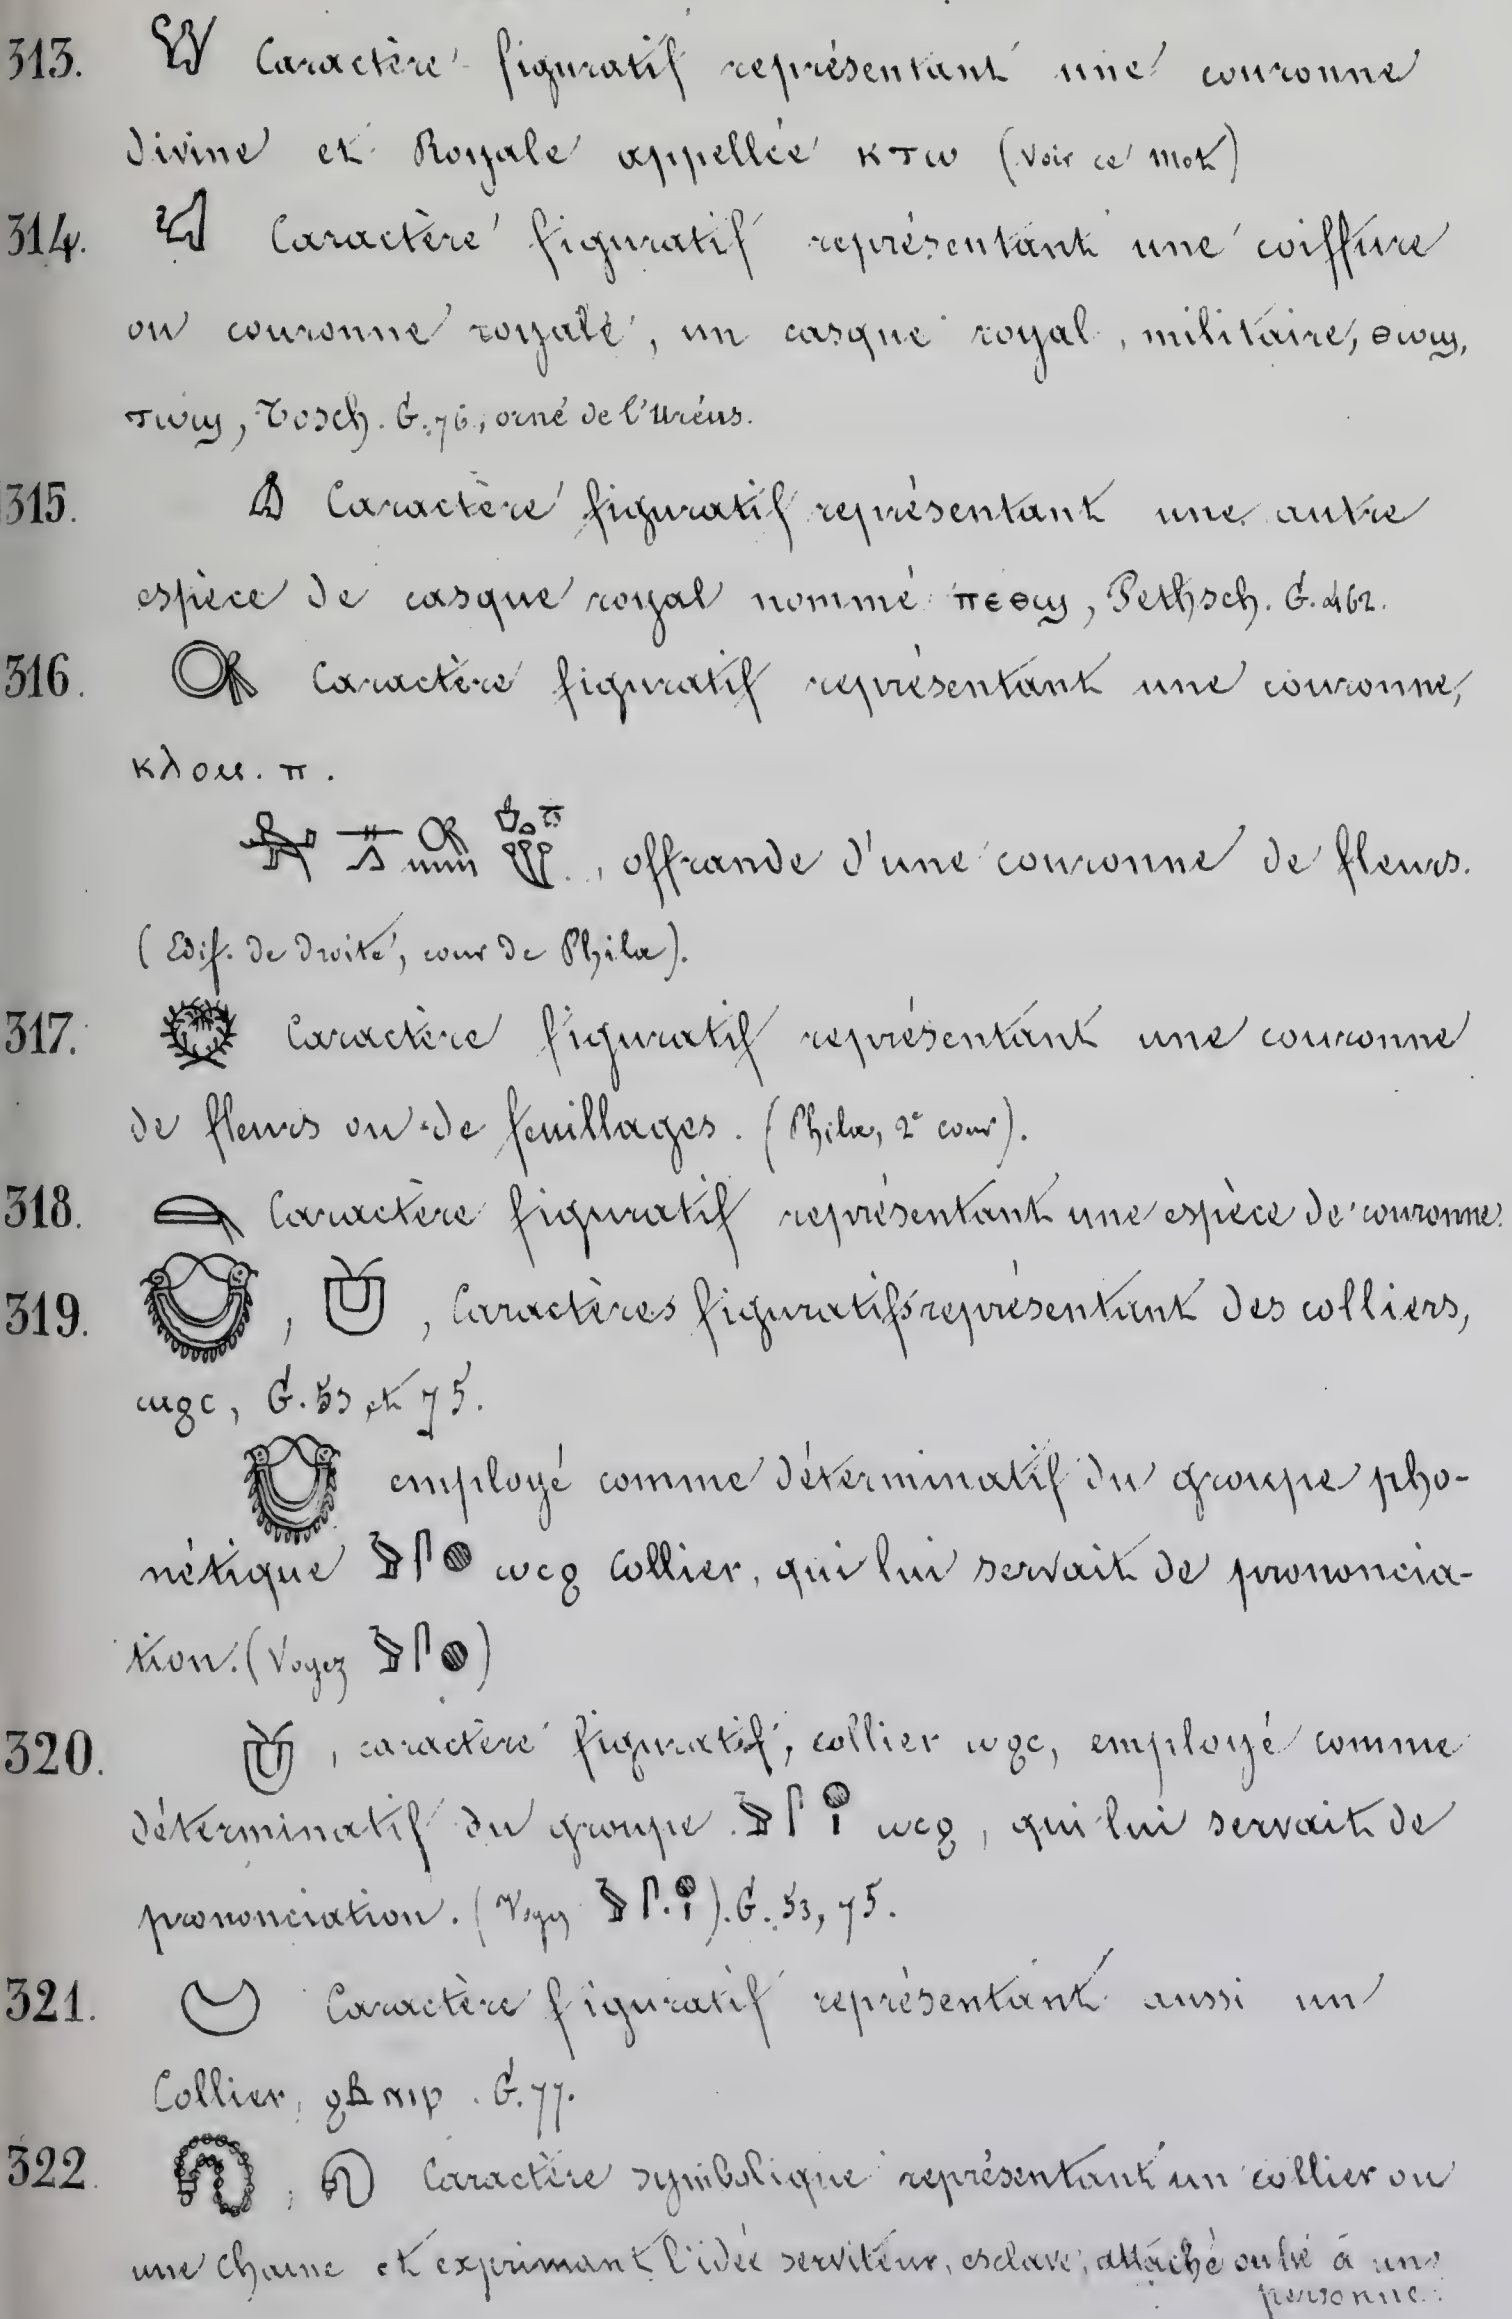 313. Caractère figuratif représentant une couronne
divine et Royale appellée ⲕⲧⲱ (Voir ce mot)
314. Caractère figuratif représentant une coiffure
ou couronne royale, un casque royal, militaire, ⲑⲱϣ,
ⲧⲱϣ, Tosch. G. 76, orné de l'Uréus.
315. Caractère figuratif représentant une autre
espèce de casque royal nommé ⲡⲉⲑϣ, Pethsch. G. 462.
316. Caractère figuratif représentant une couronne,
ⲕⲗⲟⲙ. ⲡ.
, offrande d'une couronne de fleurs.
(Edif. de droite, cour de Philæ).
317. Caractère figuratif représentant une couronne
de fleurs ou de feuillages. (Philæ, 2e cour).
318. Caractère figuratif représentant une espèce de couronne.
319. , , Caractères figuratifs représentant des colliers,
ⲱϩⲥ, G. 53 et 75.
employé comme déterminatif du groupe pho-
nétique ⲱⲥϩ Collier, qui lui servait de prononcia-
tion. (Voyez )
320. , caractère figuratif, collier ⲱϩⲥ, employé comme
déterminatif du groupe ⲱⲥϩ, qui lui servait de
prononciation. (Voyez ). G. 53, 75.
321. Caractère figuratif représentant aussi un
Collier, G. 77.
322. , Caractère symbolique représentant un collier ou
une chaine et exprimant l'idée serviteur, esclave, attaché ou lié à une
personne.